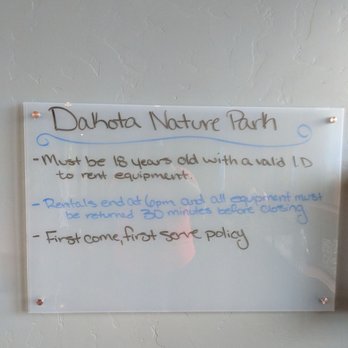 Dakota Nature Park
- Must be 18 years old with a valid I.D
to rent equipment.
- Rentals end at 6pm and all equipment must
be returned 30 minutes before closing
- First come, first serve policy